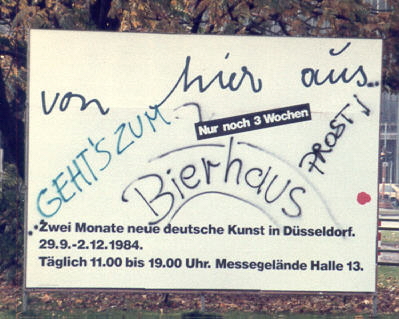 von hier aus...
GEHT'S ZUM
Nur noch 3 Wochen
PROST!
Bierhaus
Zwei Monate neue deutsche Kunst in Düsseldorf.
29.9.-2.12.1984.
Täglich 11.00 bis 19.00 Uhr. Messegelände Halle 13.